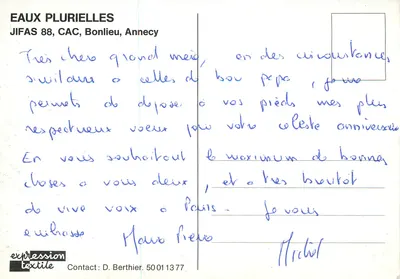 EAUX PLURIELLES
JIFAS 88, CAC, Bonlieu, Annecy
Très chère grand mère, en des circonstances
similaires à celles de bon papa, je me
permets de déposer à vos pieds mes plus
respectueux voeux pour votre céleste anniversaire
En vous souhaitant le maximum de bonnes
choses à vous deux, et à très bientôt
de vive voix à Paris. Je vous
embrasse
expression
textile
Contact : D. Berthier. 50 01 13 77